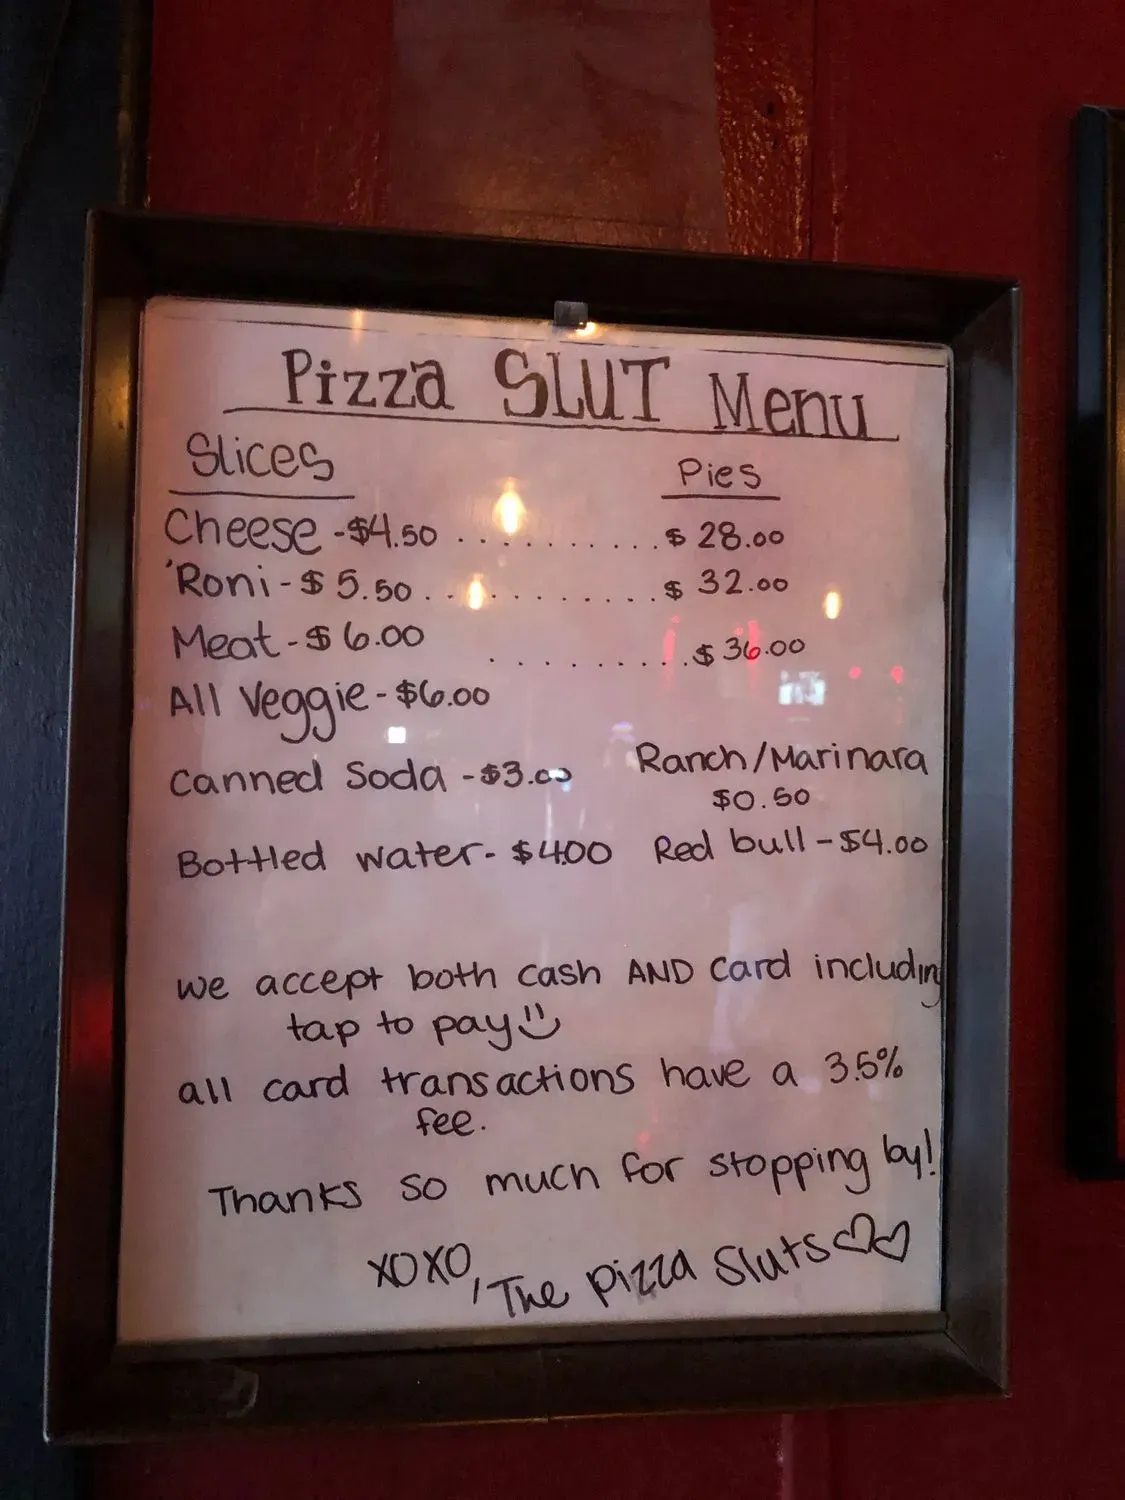 Pizza SLUT Menu
Slices
Pies
Cheese - $4.50 . . . . . . . . . . . $ 28.00
'Roni - $ 5.50 . . . . . . . . . . . . $ 32.00
Meat - $ 6.00
. . . . . . . . . $ 36.00
All Veggie - $6.00
Canned Soda - $3.00
Ranch/Marinara
$0.50
Bottled water - $4.00
Red bull - $4.00
we accept both cash AND card including
tap to pay
all card transactions have a 3.5%
fee.
Thanks so much for stopping by!
XOXO,
The Pizza Sluts